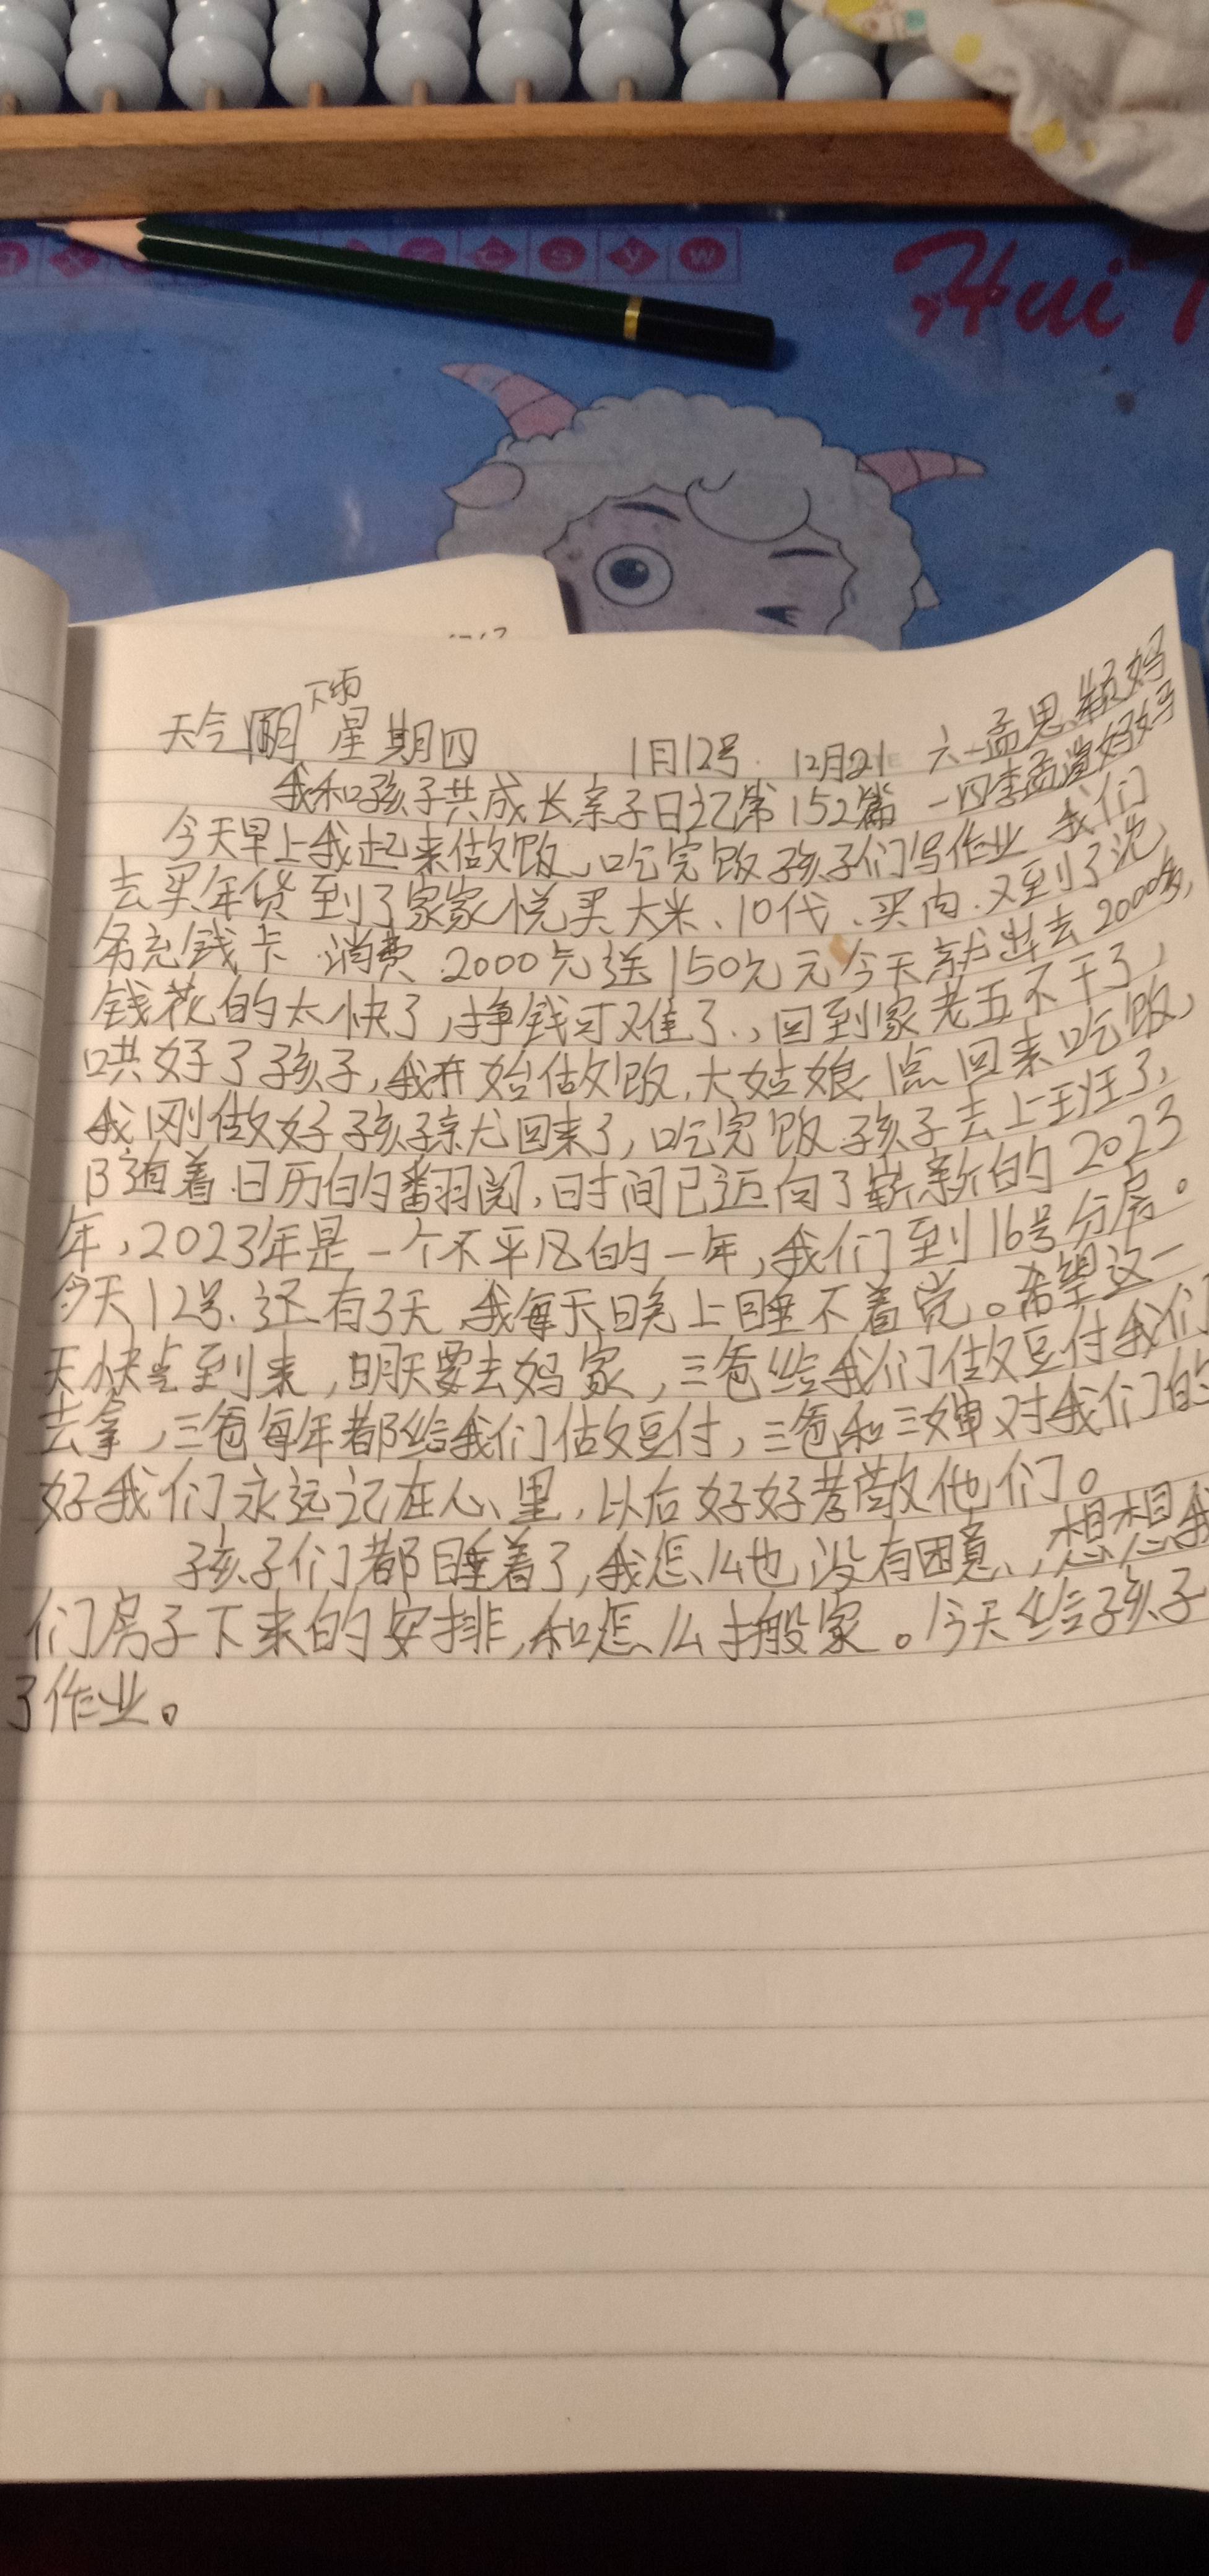 w
Hui
下雨
天气阴 星期四 1月12号 12月21 六一孟思颖妈
我和孩子共成长亲子日记第152篇 一四李孟滢妈妈
今天早上我起来做饭、吃完饭孩子们写作业 我们
去买年货到了家家悦买大米、10代、买肉.又到了洗
充钱卡.消费.2000元送150元元今天就出去2000多,
钱花的太快了,挣钱可难了.,回到家老五不干了,
哄好了孩子,我开始做饭,大姑娘1点回来吃饭,
我刚做好孩子就回来了,吃完饭.孩子去上班了,
随着.日历的翻阅,时间已迈向了崭新的2023
年,2023年是一个不平凡的一年,我们到16号分房。
今天12号.还有3天.我每天晚上睡不着觉。希望这一
天快点到来,明天要去妈家,三爸给我们做豆付我们
去拿,三爸每年都给我们做豆付,三爸和三婶对我们的
好我们永远记在心里,以后好好孝敬他们。
孩子们都睡着了,我怎么也没有困意,想想我
们房子下来的安排,和怎么搬家。今天给孩子
了作业。